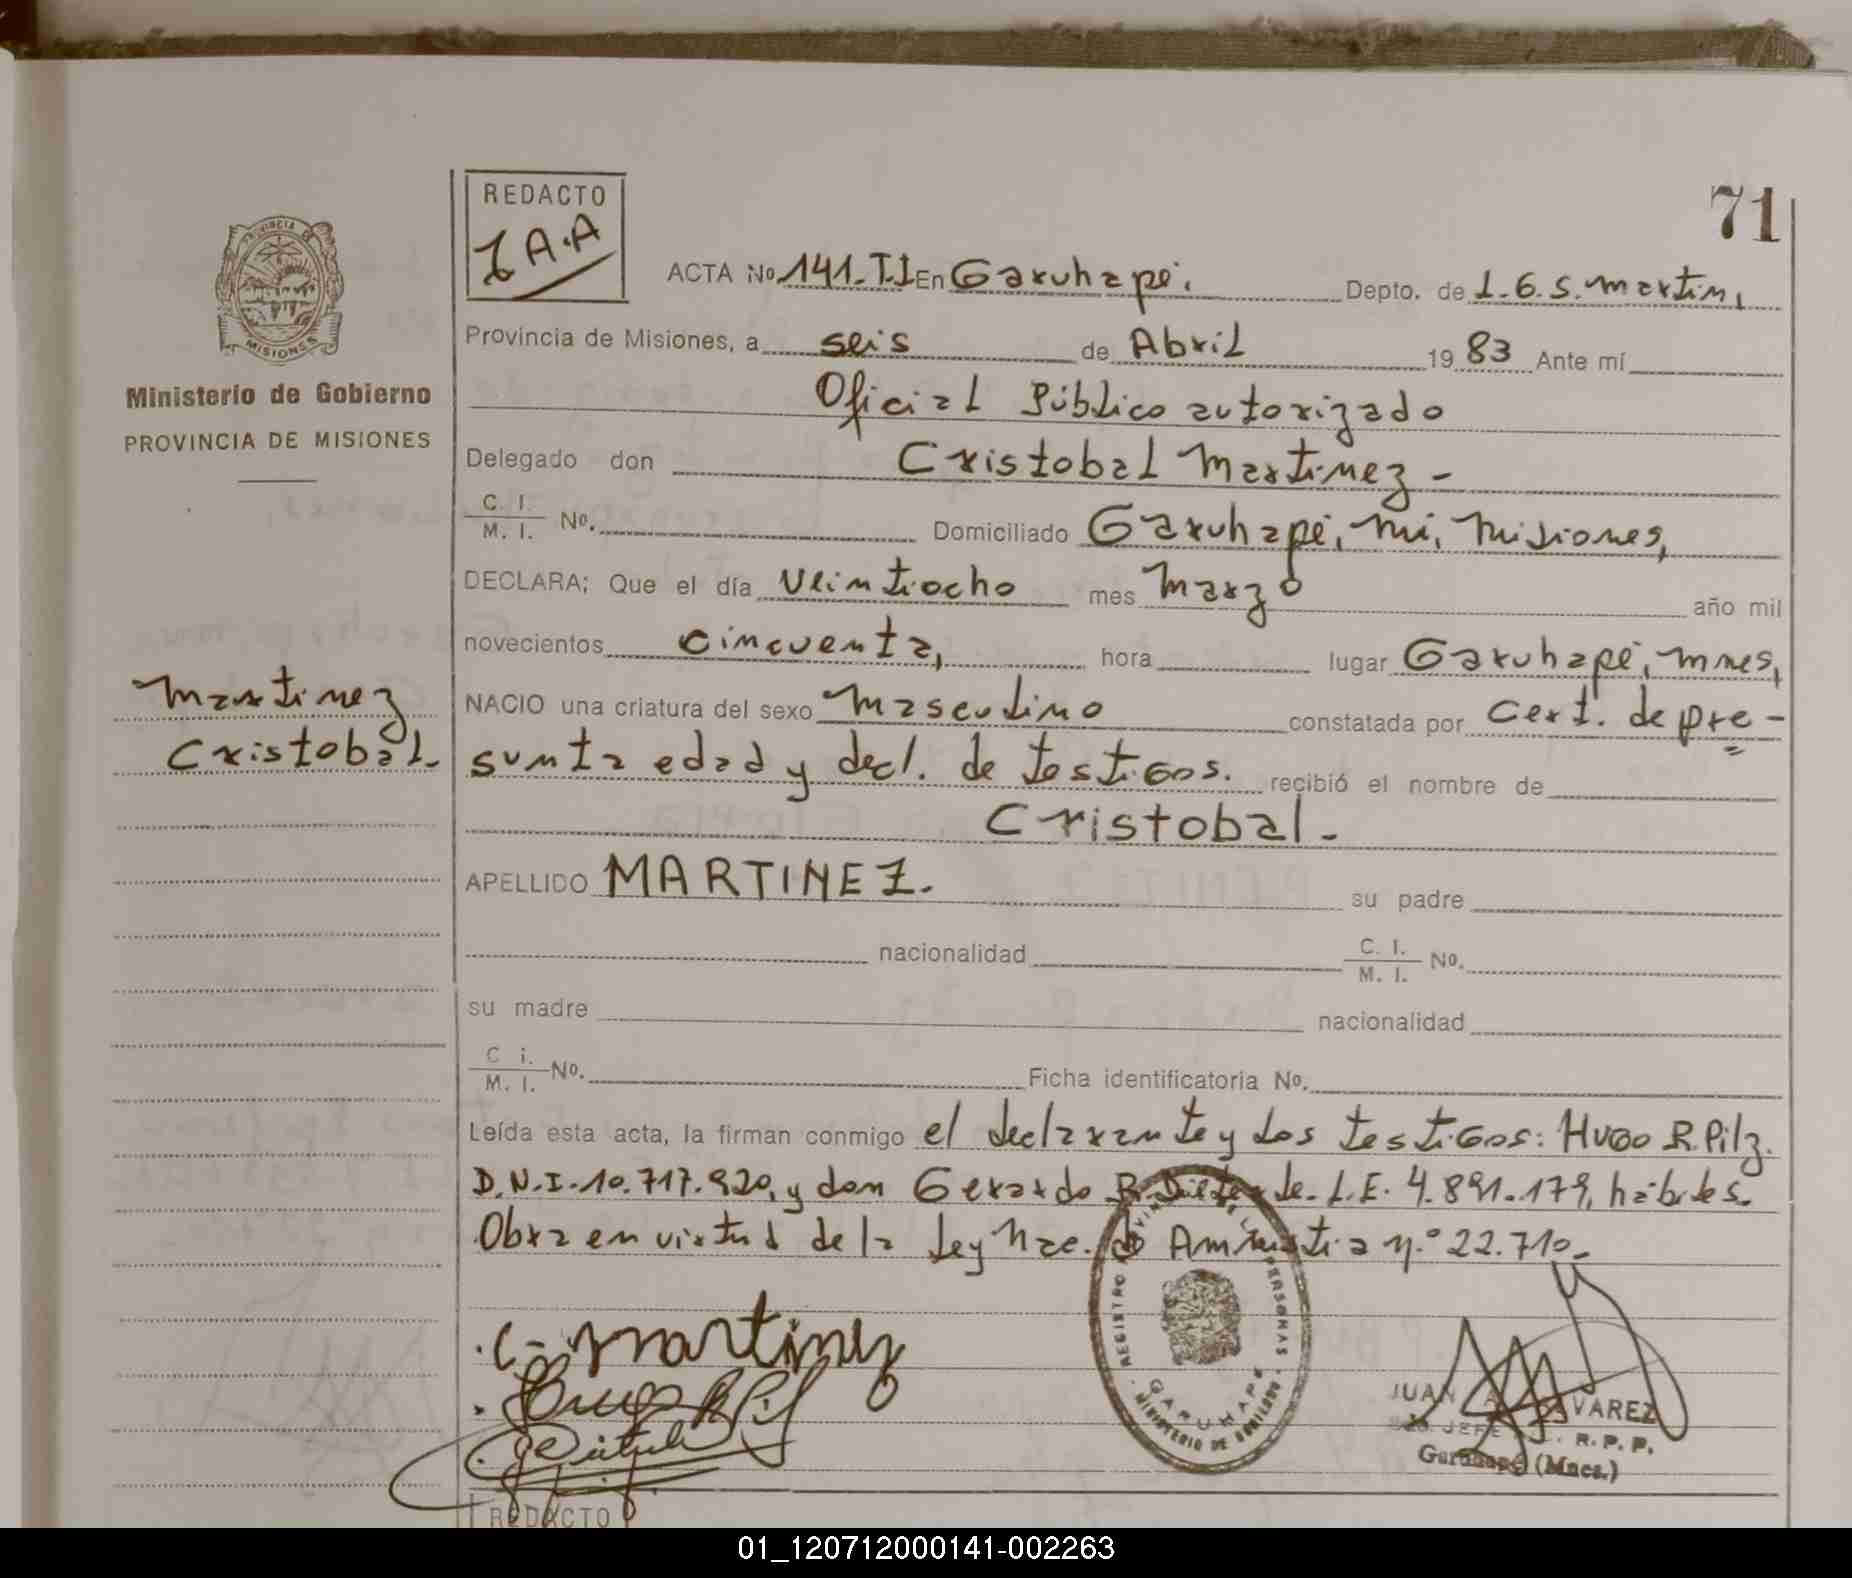 71
REDACTO
J A.A
ACTA Nº 141. T.I En Garuhapé. Depto. de L.G.S. Martin,
PROVINCIA DE
MISIONES
Ministerio de Gobierno
PROVINCIA DE MISIONES
Provincia de Misiones, a seis de Abril 1983 Ante mí
Oficial Público autorizado
Delegado don Cristobal Martinez -
C. I.
M. I. Nº. Domiciliado Garuhapé, Mi, Misiones,
DECLARA; Que el día veintiocho mes Marzo año mil
novecientos cincuenta, hora lugar Garuhapé, Mnes,
Martinez
Cristobal.
NACIO una criatura del sexo Masculino constatada por Cert. de pre-
sunta edad y decl. de testigos. recibió el nombre de
Cristobal.
APELLIDO MARTINEZ. su padre
nacionalidad C. I.
M. I. Nº.
su madre nacionalidad
C i.
M. I. Nº. Ficha identificatoria Nº.
Leída esta acta, la firman conmigo el declarante y los testigos: Hugo R. Pilz.
D.N.I. 10.717.920, y don Gerardo R. L.E. 4.891.179, hábiles.
Obra en virtud de la Ley Nac. de Amnistia n.º 22.710.
C. Martinez
REGISTRO PROVINCIAL DE LAS PERSONAS
GARUHAPE
MINISTERIO DE GOBIERNO
JUAN A. ALVAREZ
JEFE R.P.P.
Garuhapé (Mnes.)
REDACTO
01_120712000141-002263